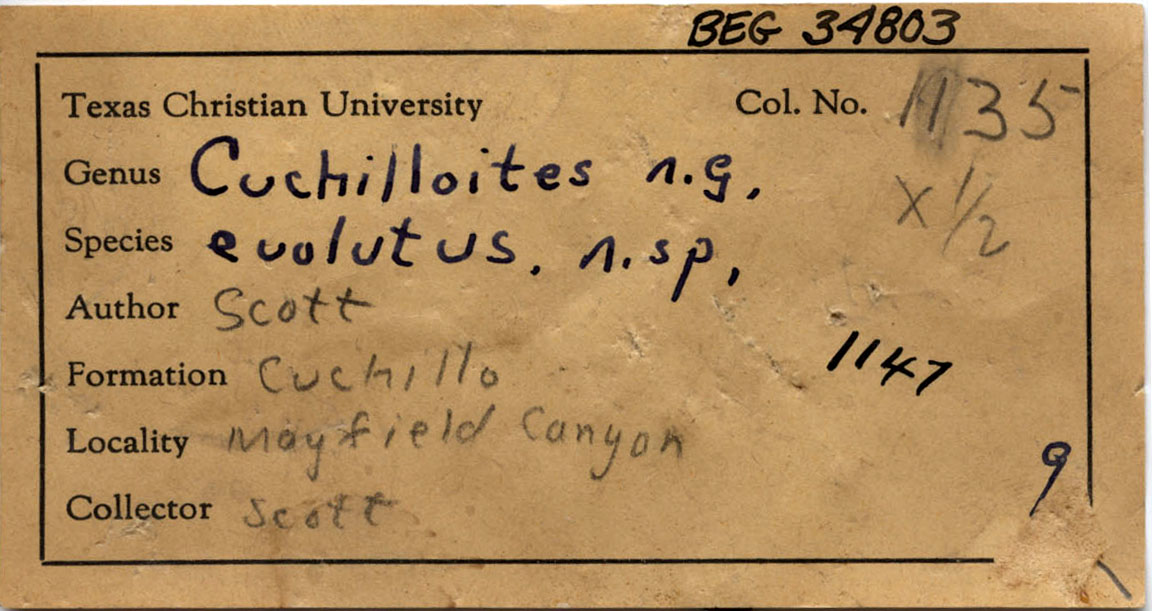 BEG 34803
Texas Christian University Col. No. 1135
Genus Cuchilloites n.g.
x 1/2
Species evolutus. n.sp.
Author Scott
1147
Formation Cuchillo
Locality Mayfield Canyon
9
Collector Scott